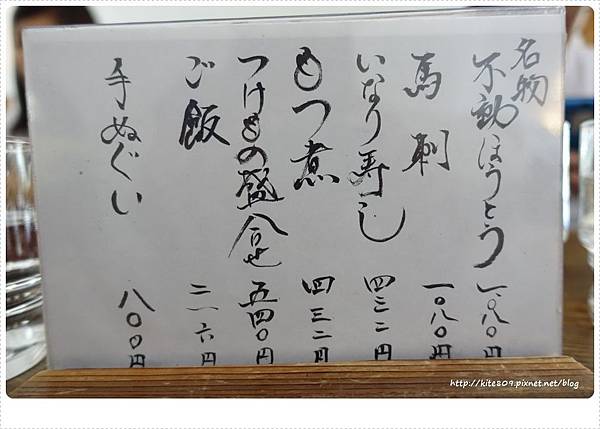 名物
不動ほうとう 一、〇八〇円
馬刺 一〇八〇円
いなり寿し 四三二円
もつ煮 四三二円
つけもの盛合せ 五四〇円
ご飯 二一六円
手ぬぐい 八〇〇円
http://kite809.pixnet.net/blog